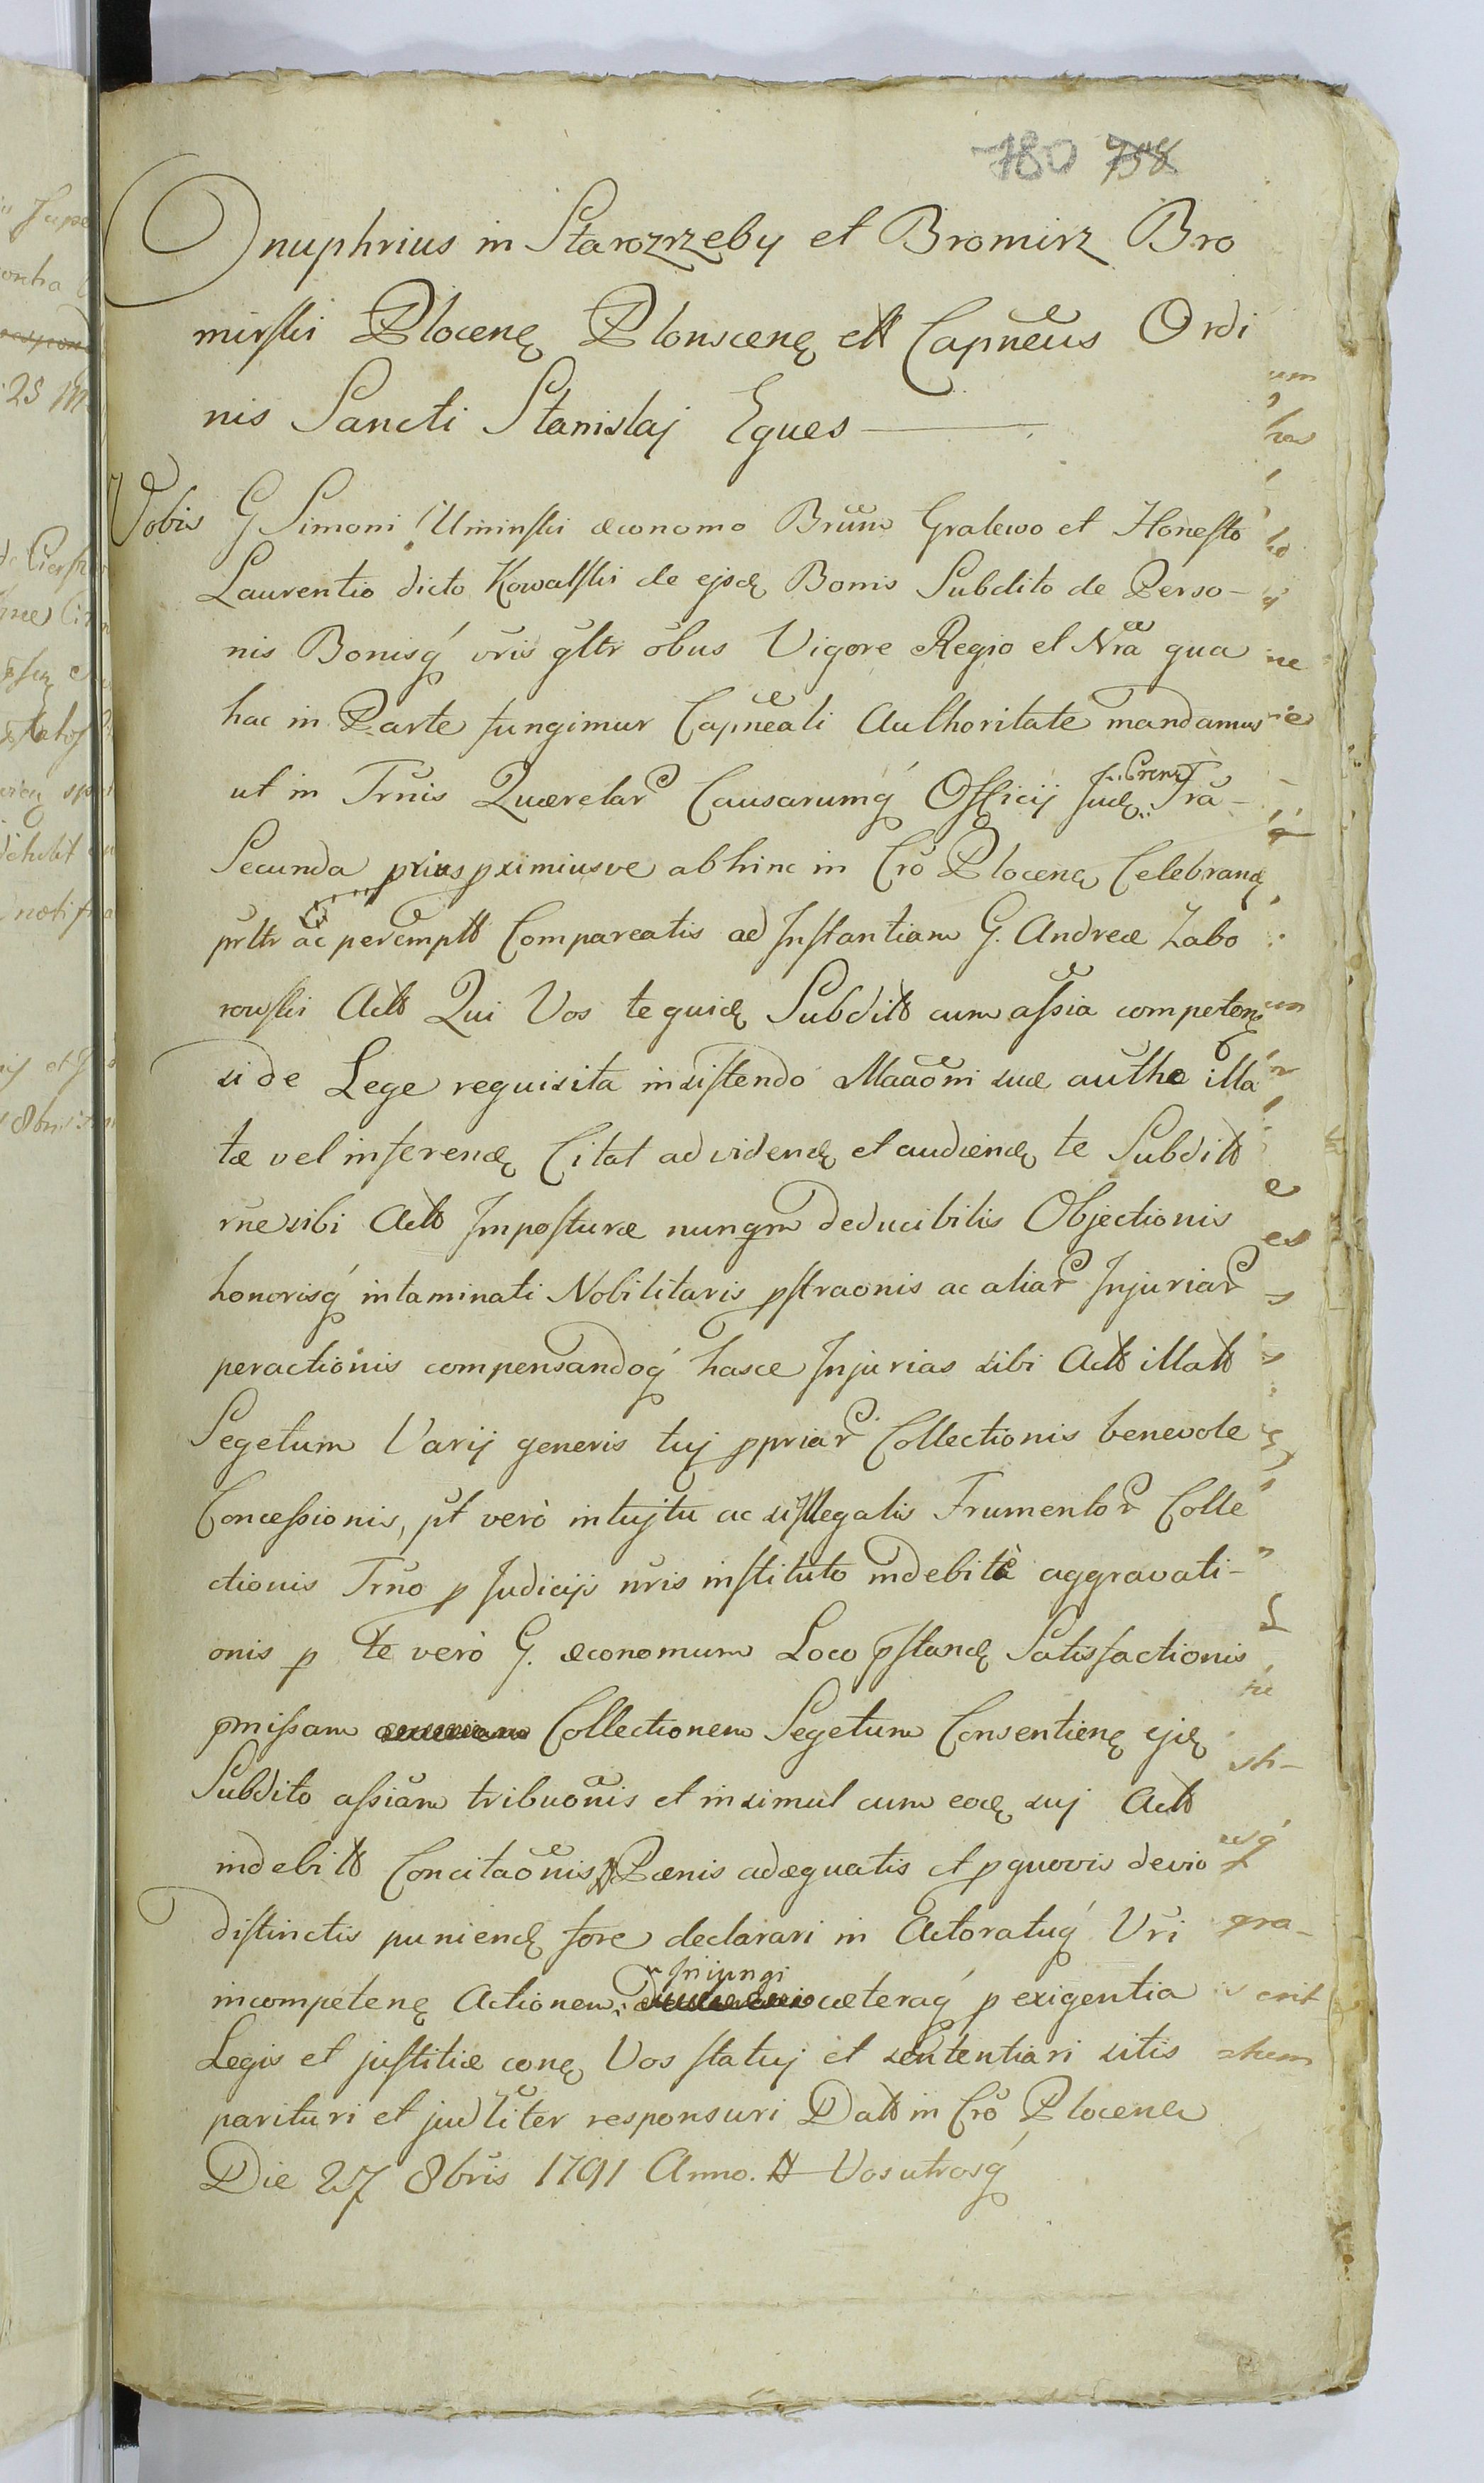 780 758
Onuphrius in Starozrzeby et Bromirz Bro
mirski Plocenę Plonscenę ett Capneus Ordi
nis Sancti Stanislaj Eques
Vobis G Simoni Uminski œconomo Brum Gralewo et Honesto
Laurentio dicto Kowalski de ejsdę Bonis Subdito de Perso-
nis Bonisq́ vris gltr obus Vigore Regio et Nra qua
hac in Parte fungimur Capneali Authoritate mandamus
ut in Trnis Querelar Causarumq́ Officij Judę Tra-
Secunda prius pximiusve abhinc in Cro Plocenę Celebrandę
prltr ac perempttt Compareatis ad Instantiam G. Andreæ Zabo
rowski Actt Qui Vos te quidę Subditt cum assia competenę
si de Lege requisita insistendo Maaoni suæ autho illa
tæ vel inferendę Citat ad videndę et audiendę te Subditt
rne sibi Actt Imposturæ nunqm deducibilis Objectionis
honorisq́ intaminati Nobilitaris pstraonis ac aliar Injuriar
peractionis compensandoq́ hasce Injurias sibi Actt illatt
Segetum Varij generis tuj ppriar Collectionis benevole
Concessionis, pt verò intujtu ac si illegalis Frumentor Colle
ctionis Trno p Judicijs nris instituto indebitè aggravati-
onis p te verò G. œconomum Loco pstandę Satisfactionis
pmissam Collectionem Segetum Consentienę ejdę
Subdito assiam tribuonis et insimul cum eodę suj Actt
indebitt Concitaonis Pœnis adæquatis et p quovis devio
distinctis puniendę fore declarari in Actoratuq́ Vri
Injungi
incompetenę Actionem cæteraq́ p exigentia
Legis et justitiæ conę Vos statuj et sententiari sitis
parituri et judliter responsuri Datt in Cro Plocenę
Die 27 8bris 1791 Anno. Vos utrosq́